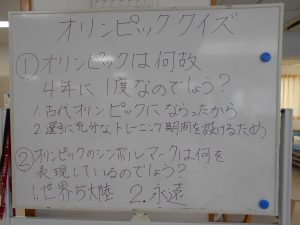 オリンピッククイズ
①オリンピックは何故
4年に1度なのでしょう？
1.古代オリンピックにならったから
2.選手に充分なトレーニング期間を設けるため
②オリンピックのシンボルマークは何を
表現しているのでしょう？
1.世界5大陸 2.永遠